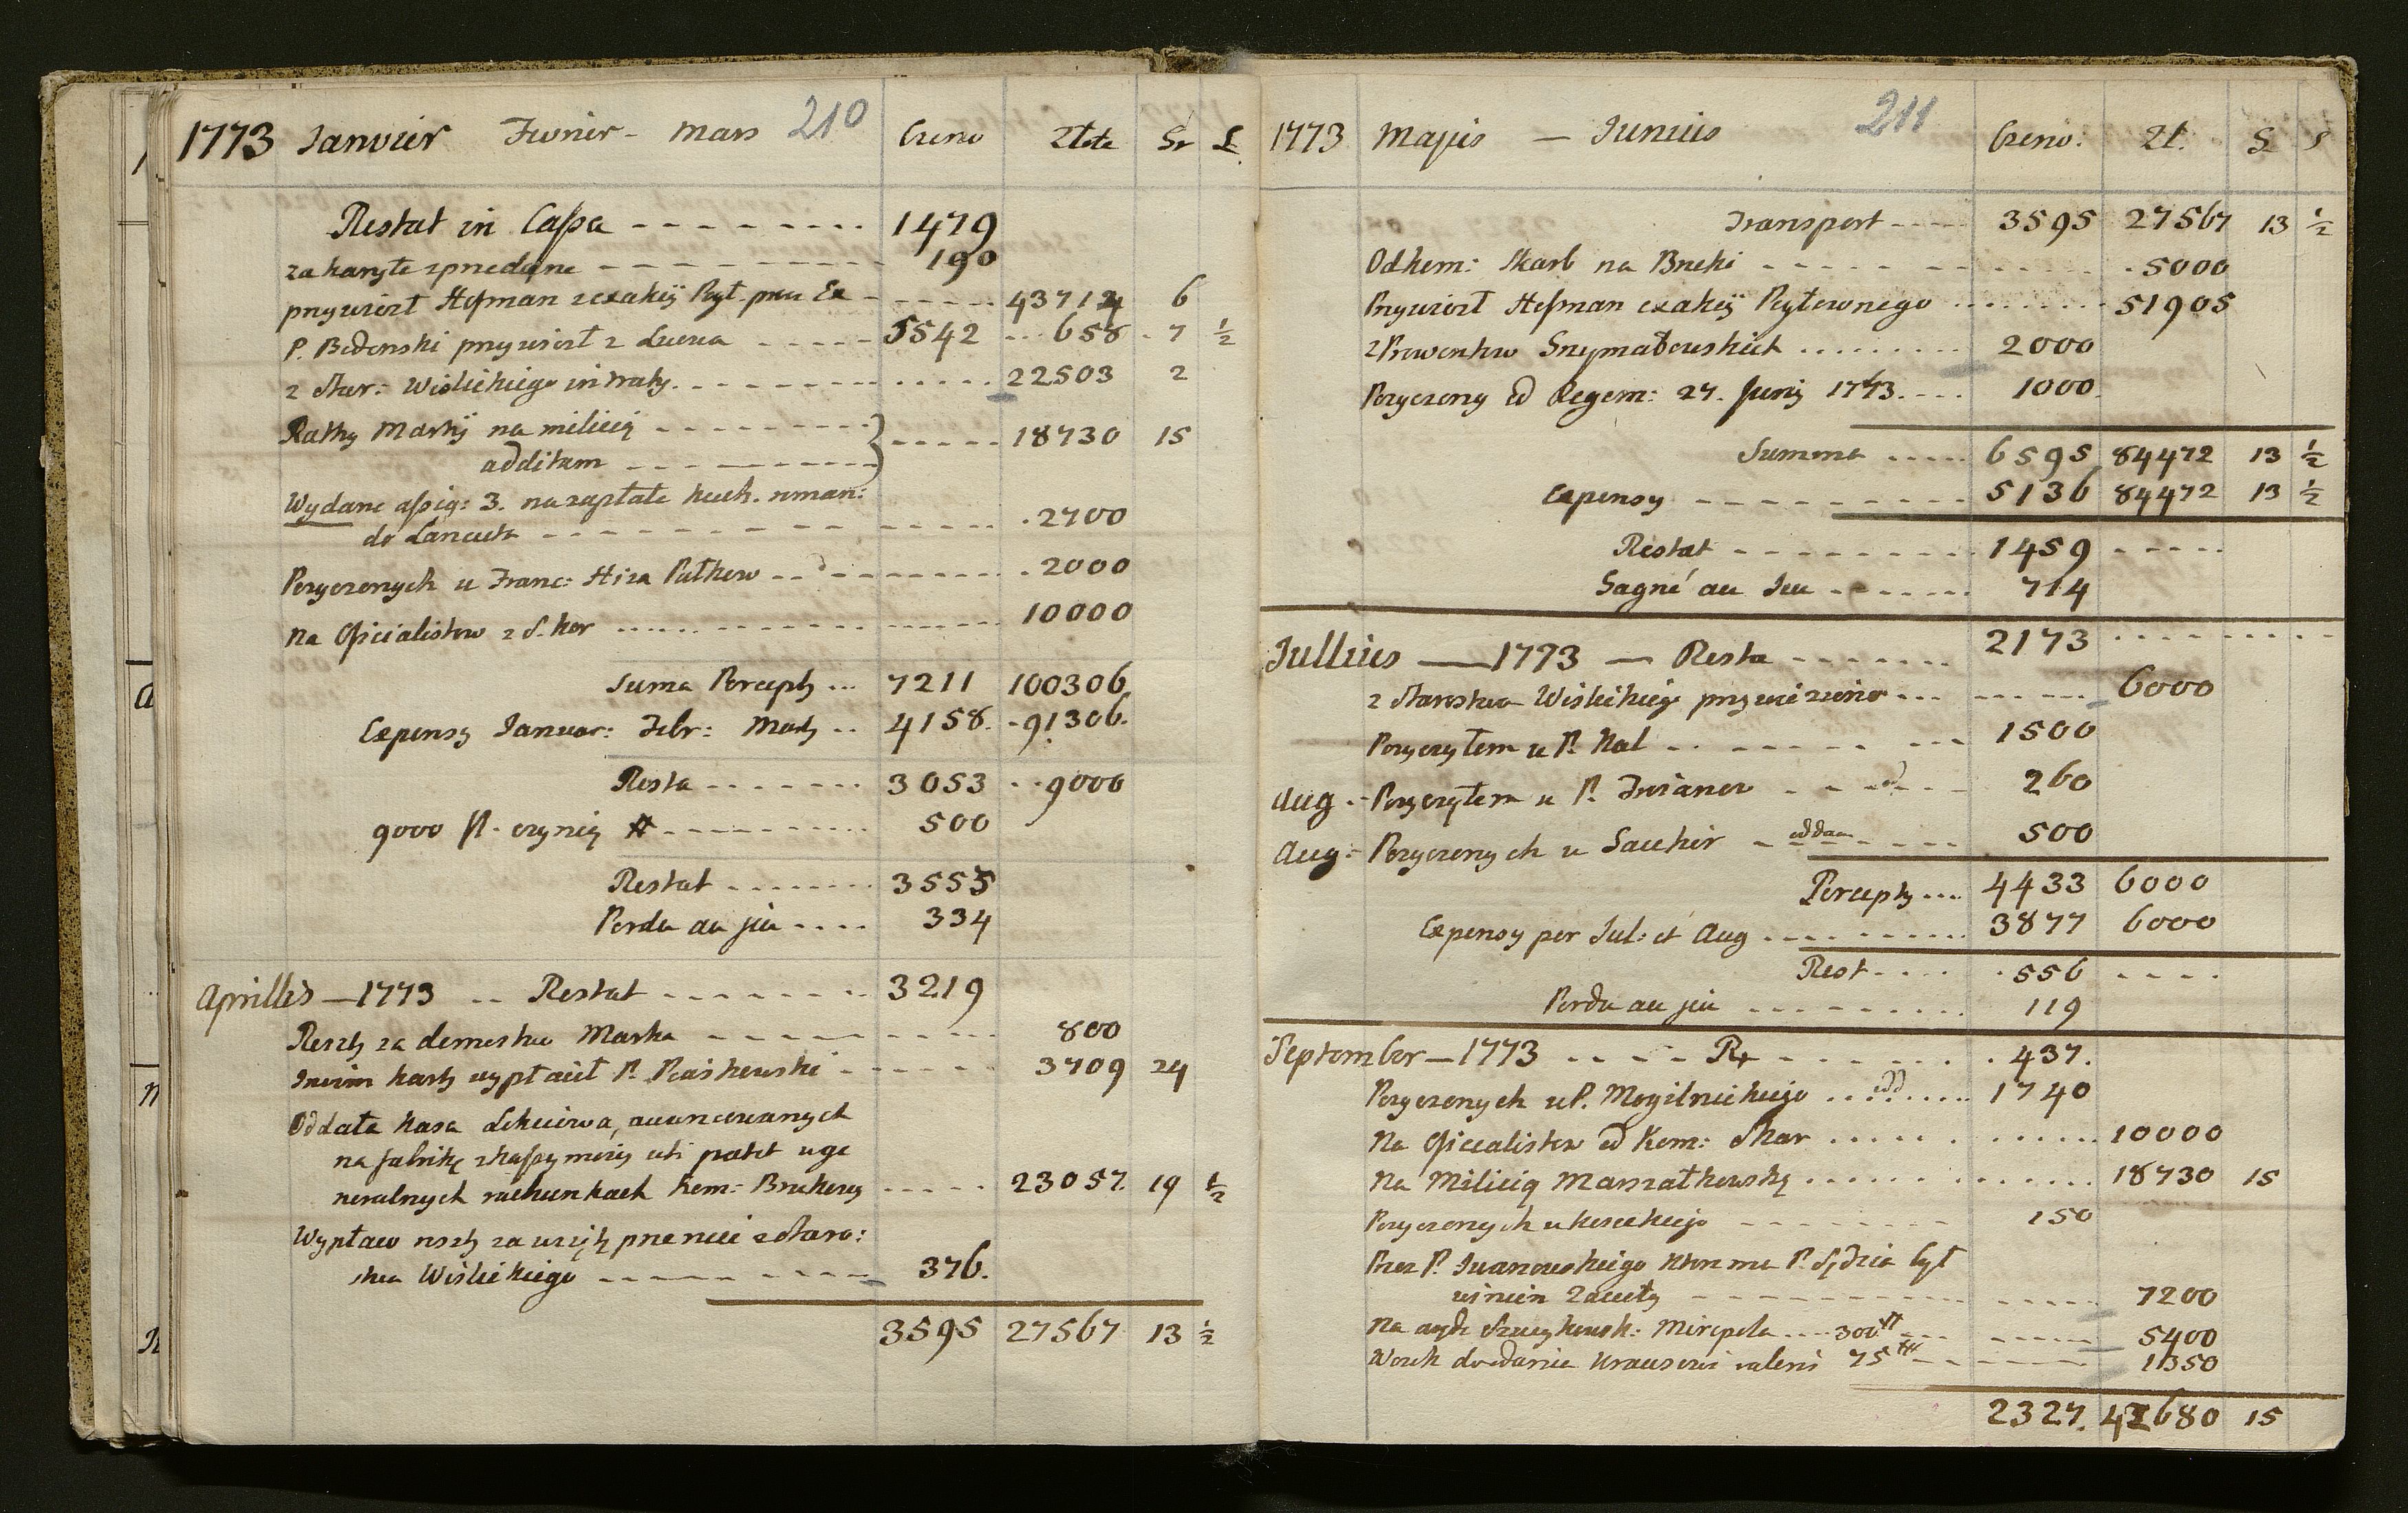 1773 Janvier Fevrier - Mars 210 Czerw Złote Sr S.
Restat in Cassa - - - - 1479
za karyte sprzedane - - - - 190
przywiozł Hofman z exakcÿ Pogł. przez Ex - - - - 43714 6
P. Bedonski przywiozł z Lwowa - - - - 5542 - - 658 - 7 ½
z Star: Wislickiego intraty - - - - 22503 2
Rathy Marty na milicią - - - -
additam - - - - 18730 15
Wydane assig: 3. na zapłate kuch.
do Łancuta - - - - 2700
Pozyczonych u Franc: Hiża Pułkow - - - - 2000
Na Oficialistow z S. Kor - - - - 10000
Suma Percepty ... 7211 100306.
Expensy Januar: Febr: Marty .. 4158. - 91306.
Resta - - - - 3053 - - 9000
9000 fl. czynią # - - - - 500
Restat - - - - 3553
Perdu au jeu - - - - 334
Aprillis — 1773 .. Restat - - - - 3219
Reszty za demestwo Marka - - - - 800
wypłacił P. Raśkowski - - - - 3709 24
Oddała Kasa Lokuiowa, auancowanych
na fabrikę uti patet w ge
neralnych rachunkach Kom: Brukowey - - - - 23057. 19 ½
Wypłac reszty za wziętą przenice z Staro:
stwa Wislickiego - - - - 376.
3595 27567 13 ½
1773 Majus — Junius 211 Czerw: Zł. S S
Transport - - - - 3595 27567 13 ½
Od Kom: Skarb na Bruki - - - - 5000
Przywiozł Hofman exakcÿ Pogłownego - - - - 51905
z Prowentow Szymanowskich - - - - 2000
Pozyczony od Regem: 27. Junij 1773. - - - - 1000.
Summa - - - - 6595 84472 13 ½
Expensy - - - - 5136 84472 13 ½
Restat - - - - 1459 - - - -
Gagné au Jeu - - - - 714
Jullius — 1773 — Resta - - - - 2173 - - - -
z Starostwa Wislickiego przywieziono - - - - 6000
Pozyczyłem u P. Kal - - - - 1500
Aug - Pozyczyłem u P. Iwanow - - od - - 260
Aug - Pozyczonych u Sauhir - oddan - - - 500
Percepty ... 4433 6000
Expensy per Jul: et Aug - - - - 3877 6000
Rest - - - - 556 - - - -
Perdu au jeu - - - - 119
September — 1773 - - - - Rx - - - - 437.
Pozyczonych u P. Mogilnickiego - - odd - - 1740
Na Oficialistow od Kom: Skar - - - - 10000
Na Milicią Marszałkowską - - - - 18730 15
Pozyczonych u Koseckiego - - - - 150
Przez P. Iwanowskiego ktore mu P. Sędzia był
winien - - - - 7200
Na Miropola - - - - 300# - - - - 5400
Worek 75# - - - - 1350
2327. 42680 15